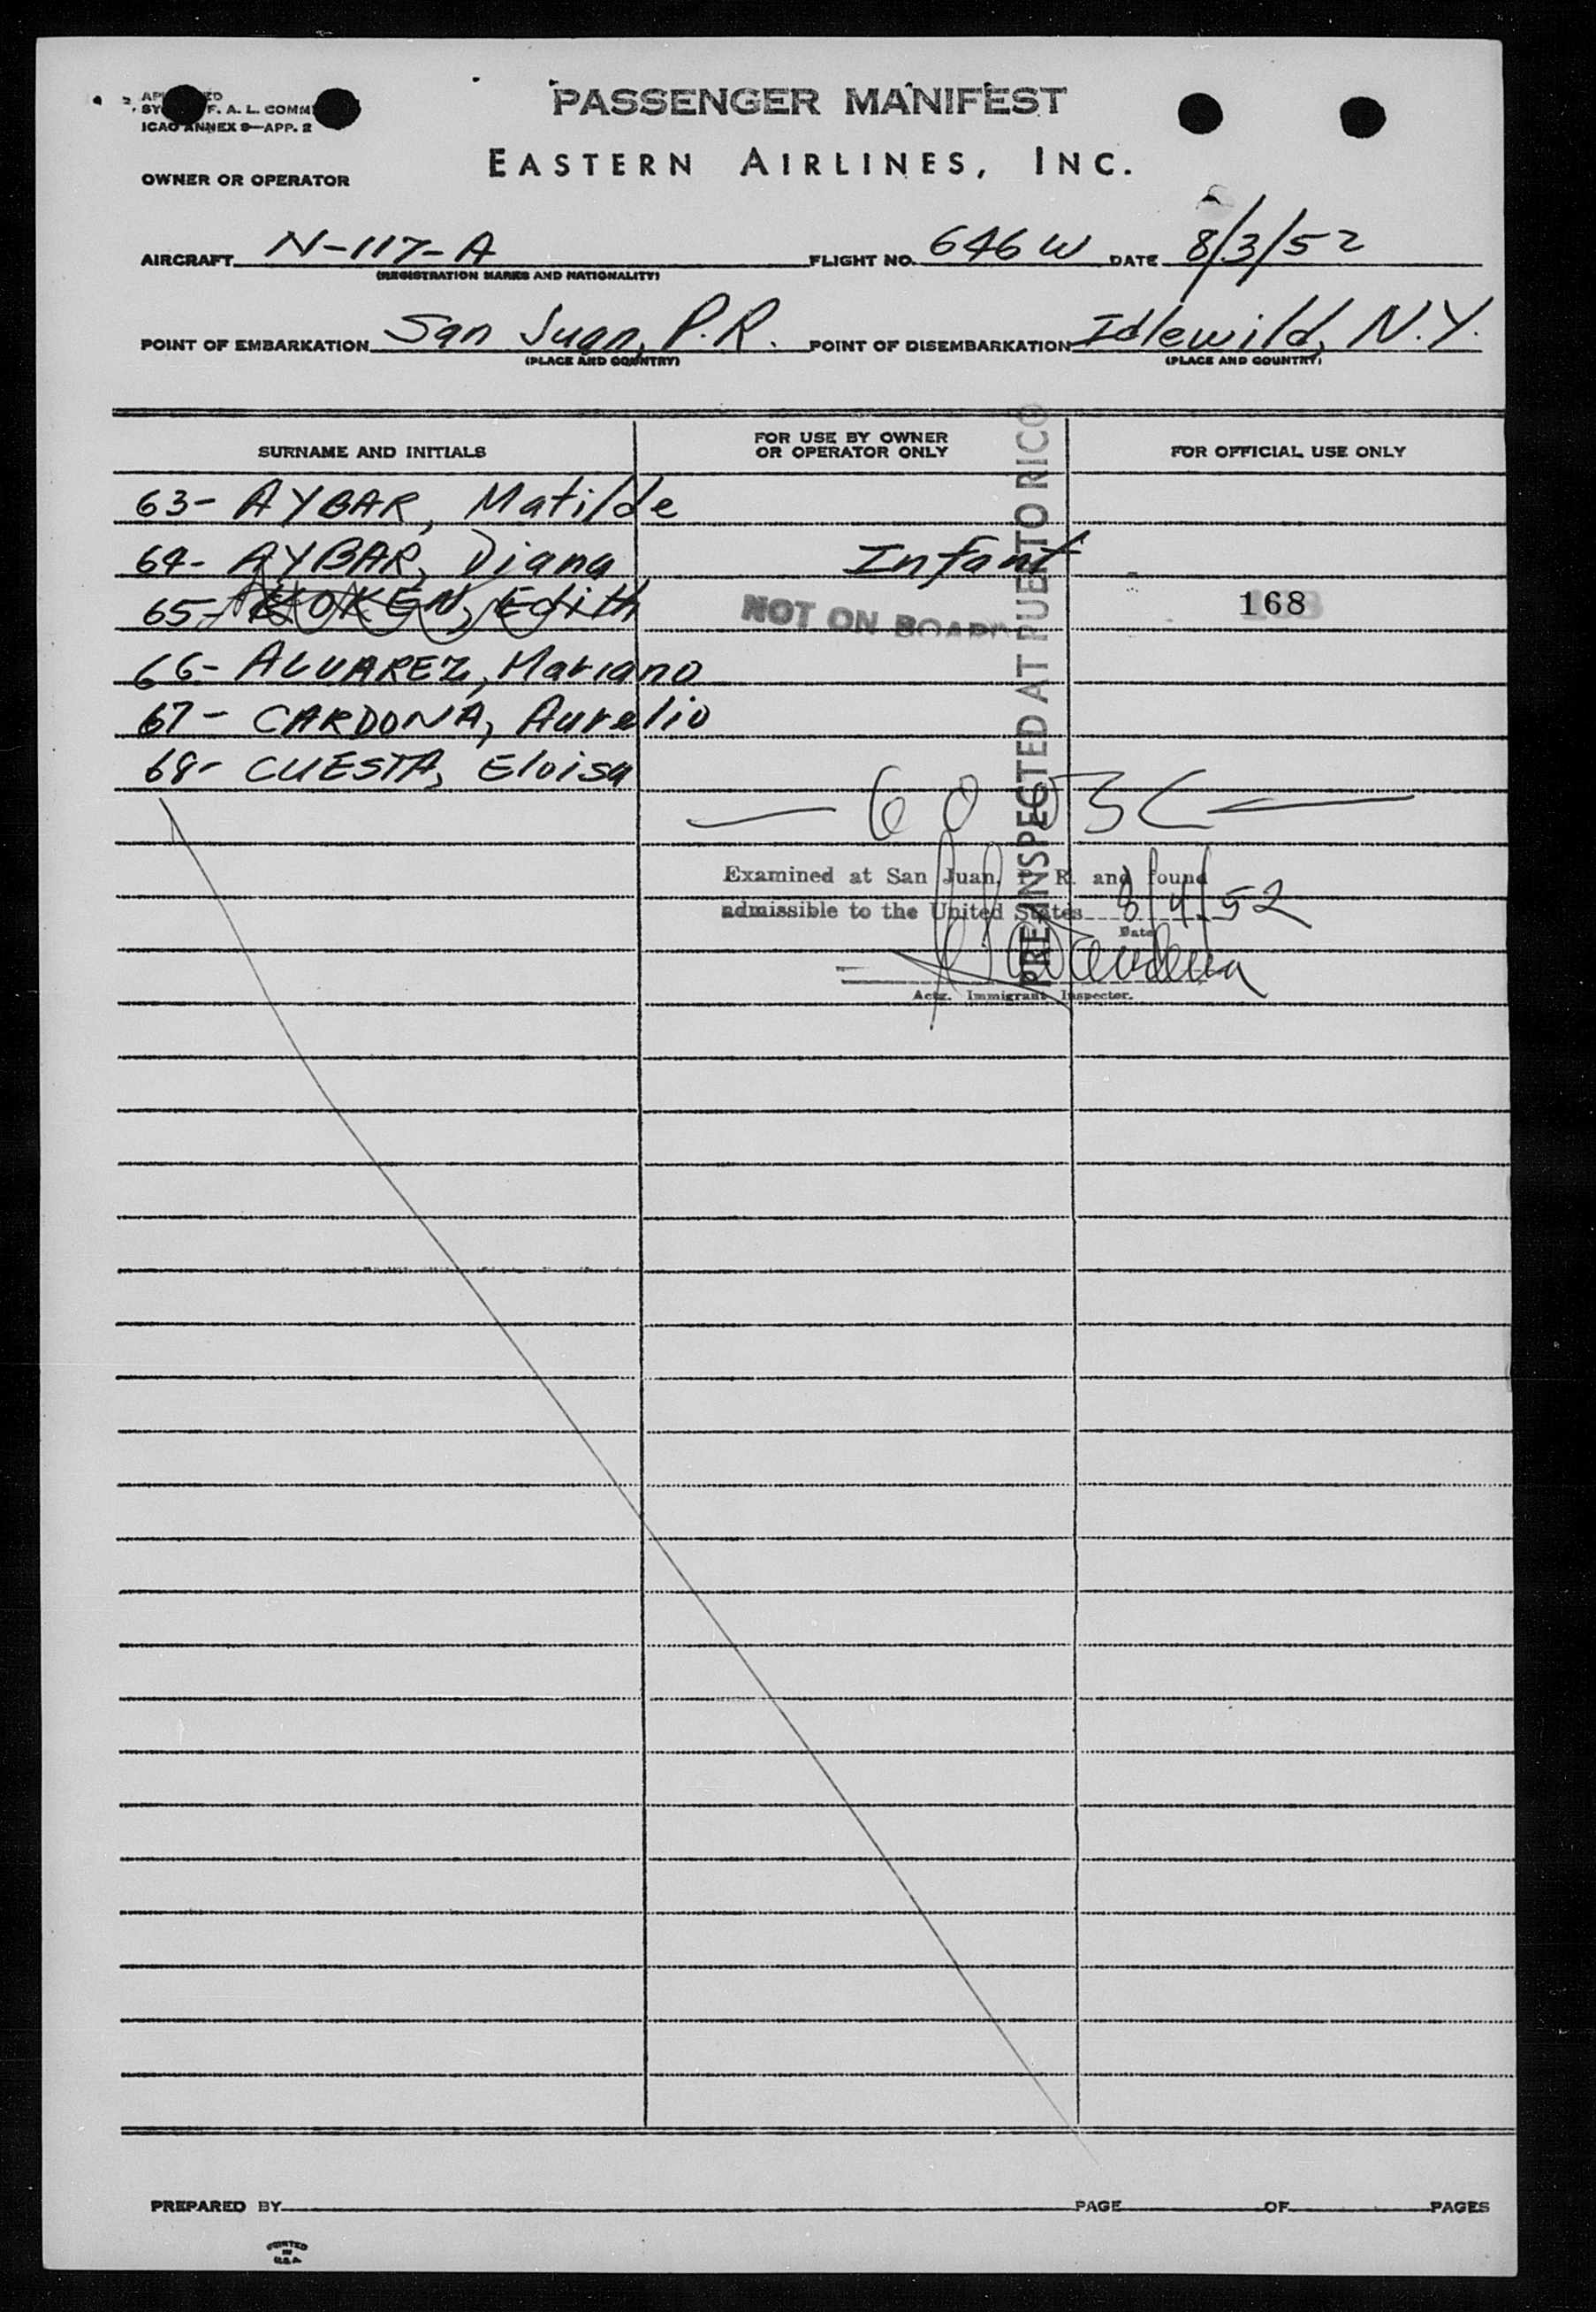 PASSENGER MANIFEST
F. A. L. COMM
ICAO ANNEX 9—APP. 2
EASTERN AIRLINES, INC.
OWNER OR OPERATOR
AIRCRAFT N-117-A FLIGHT NO. 646 W DATE 8/3/52
(REGISTRATION MARKS AND NATIONALITY)
POINT OF EMBARKATION San Juan, P.R. POINT OF DISEMBARKATION Idlewild, N.Y.
(PLACE AND COUNTRY) (PLACE AND COUNTRY)
SURNAME AND INITIALS
FOR USE BY OWNER
OR OPERATOR ONLY
FOR OFFICIAL USE ONLY
63- AYBAR, Matilde
64- AYBAR, Diana Infant
65- Edith NOT ON BOARD 168
66- ALVAREZ, Mariano
67- CARDONA, Aurelio
68- CUESTA, Eloisa
PRE-INSPECTED AT PUERTO RICO
Examined at San Juan, P. R. and found
admissible to the United States 8/4/52
Date
Actg. Immigrant Inspector.
PREPARED BY PAGE OF PAGES
PRINTED
IN
U.S.A.